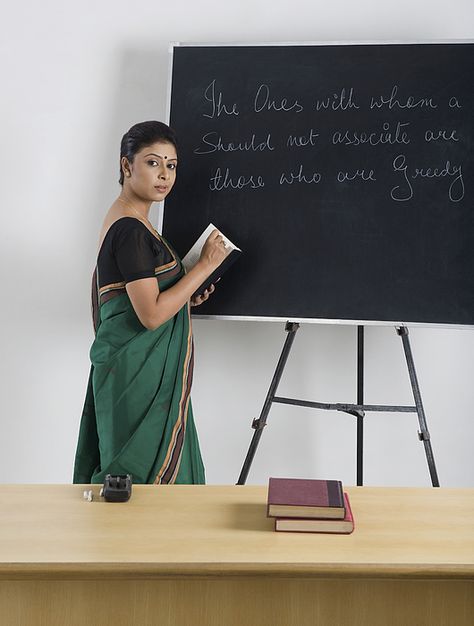 The Ones with whom a
Should not associate are
those who are Greedy